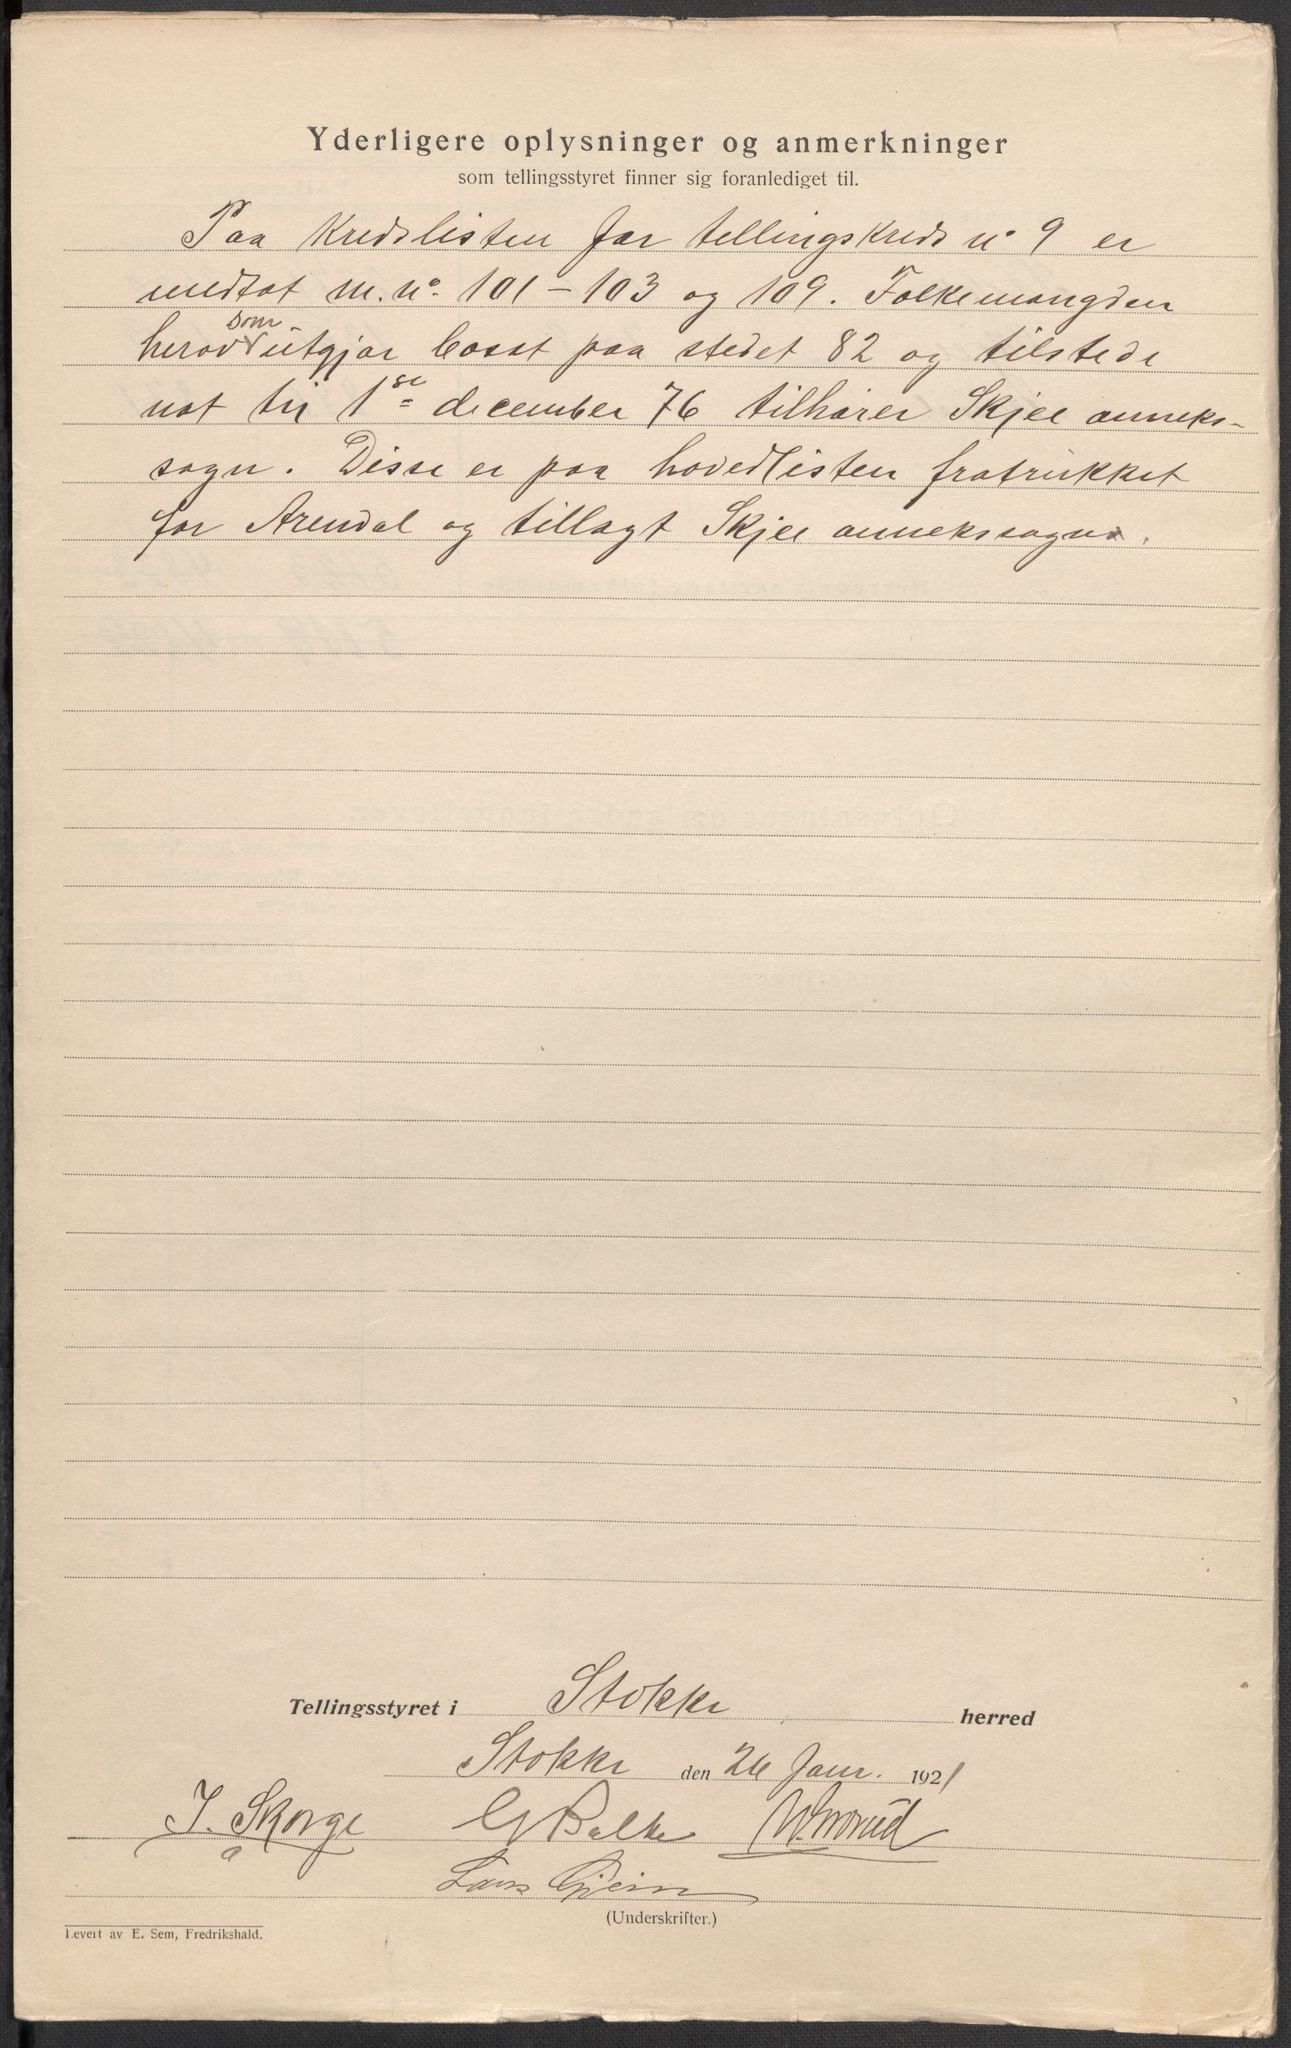 Yderligere oplysninger og anmerkninger
som tellingsstyret finner sig foranlediget til.
Paa Kredslisten for tellingskreds nº 9 er
medtat m. nº. 101 – 103 og 109. Folkemængden
herav som utgjør bosat paa stedet 82 og tilstede
nat til 1ste december 76 tilhører Skjee anneks-
sogn. Disse er paa hovedlisten fratrukket
for Arendal og tillagt Skjee annekssogn.
Tellingsstyret i Stokke herred
Stokke den 26 Janr. 1921
I. Skorge G Balke
Lars Gjein
(Underskrifter.)
Levert av E. Sem, Fredrikshald.